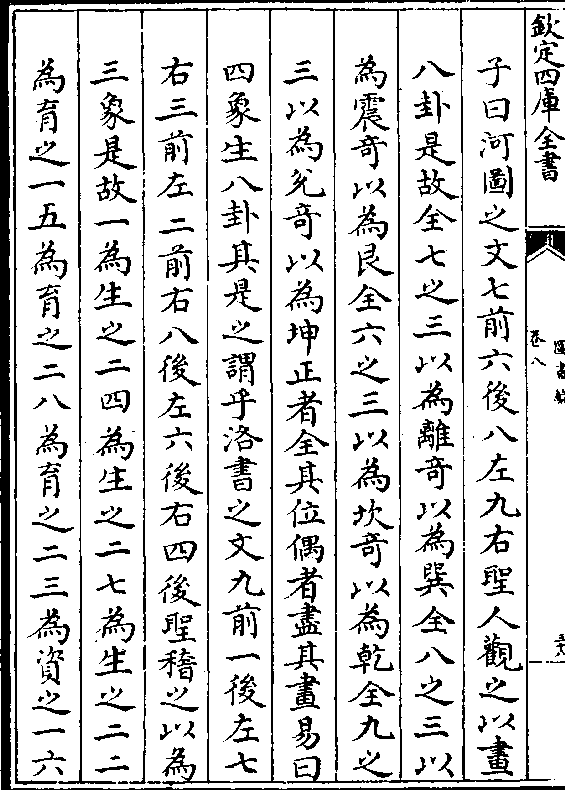 欽定四庫全書
卷八
子曰河圖之文七前六後八左九右聖人觀之以畫
八卦是故全七之三以為離奇以為巽全八之三以
為震奇以為艮全六之三以為坎奇以為乾全九之
三以為兌奇以為坤正者全其位偶者盡其畫易曰
四象生八卦其是之謂乎洛書之文九前一後左七
右三前左二前右八後左六後右四後聖稽之以為
三象是故一為生之二四為生之二七為生之二二
為育之一五為育之二八為育之二三為資之一六